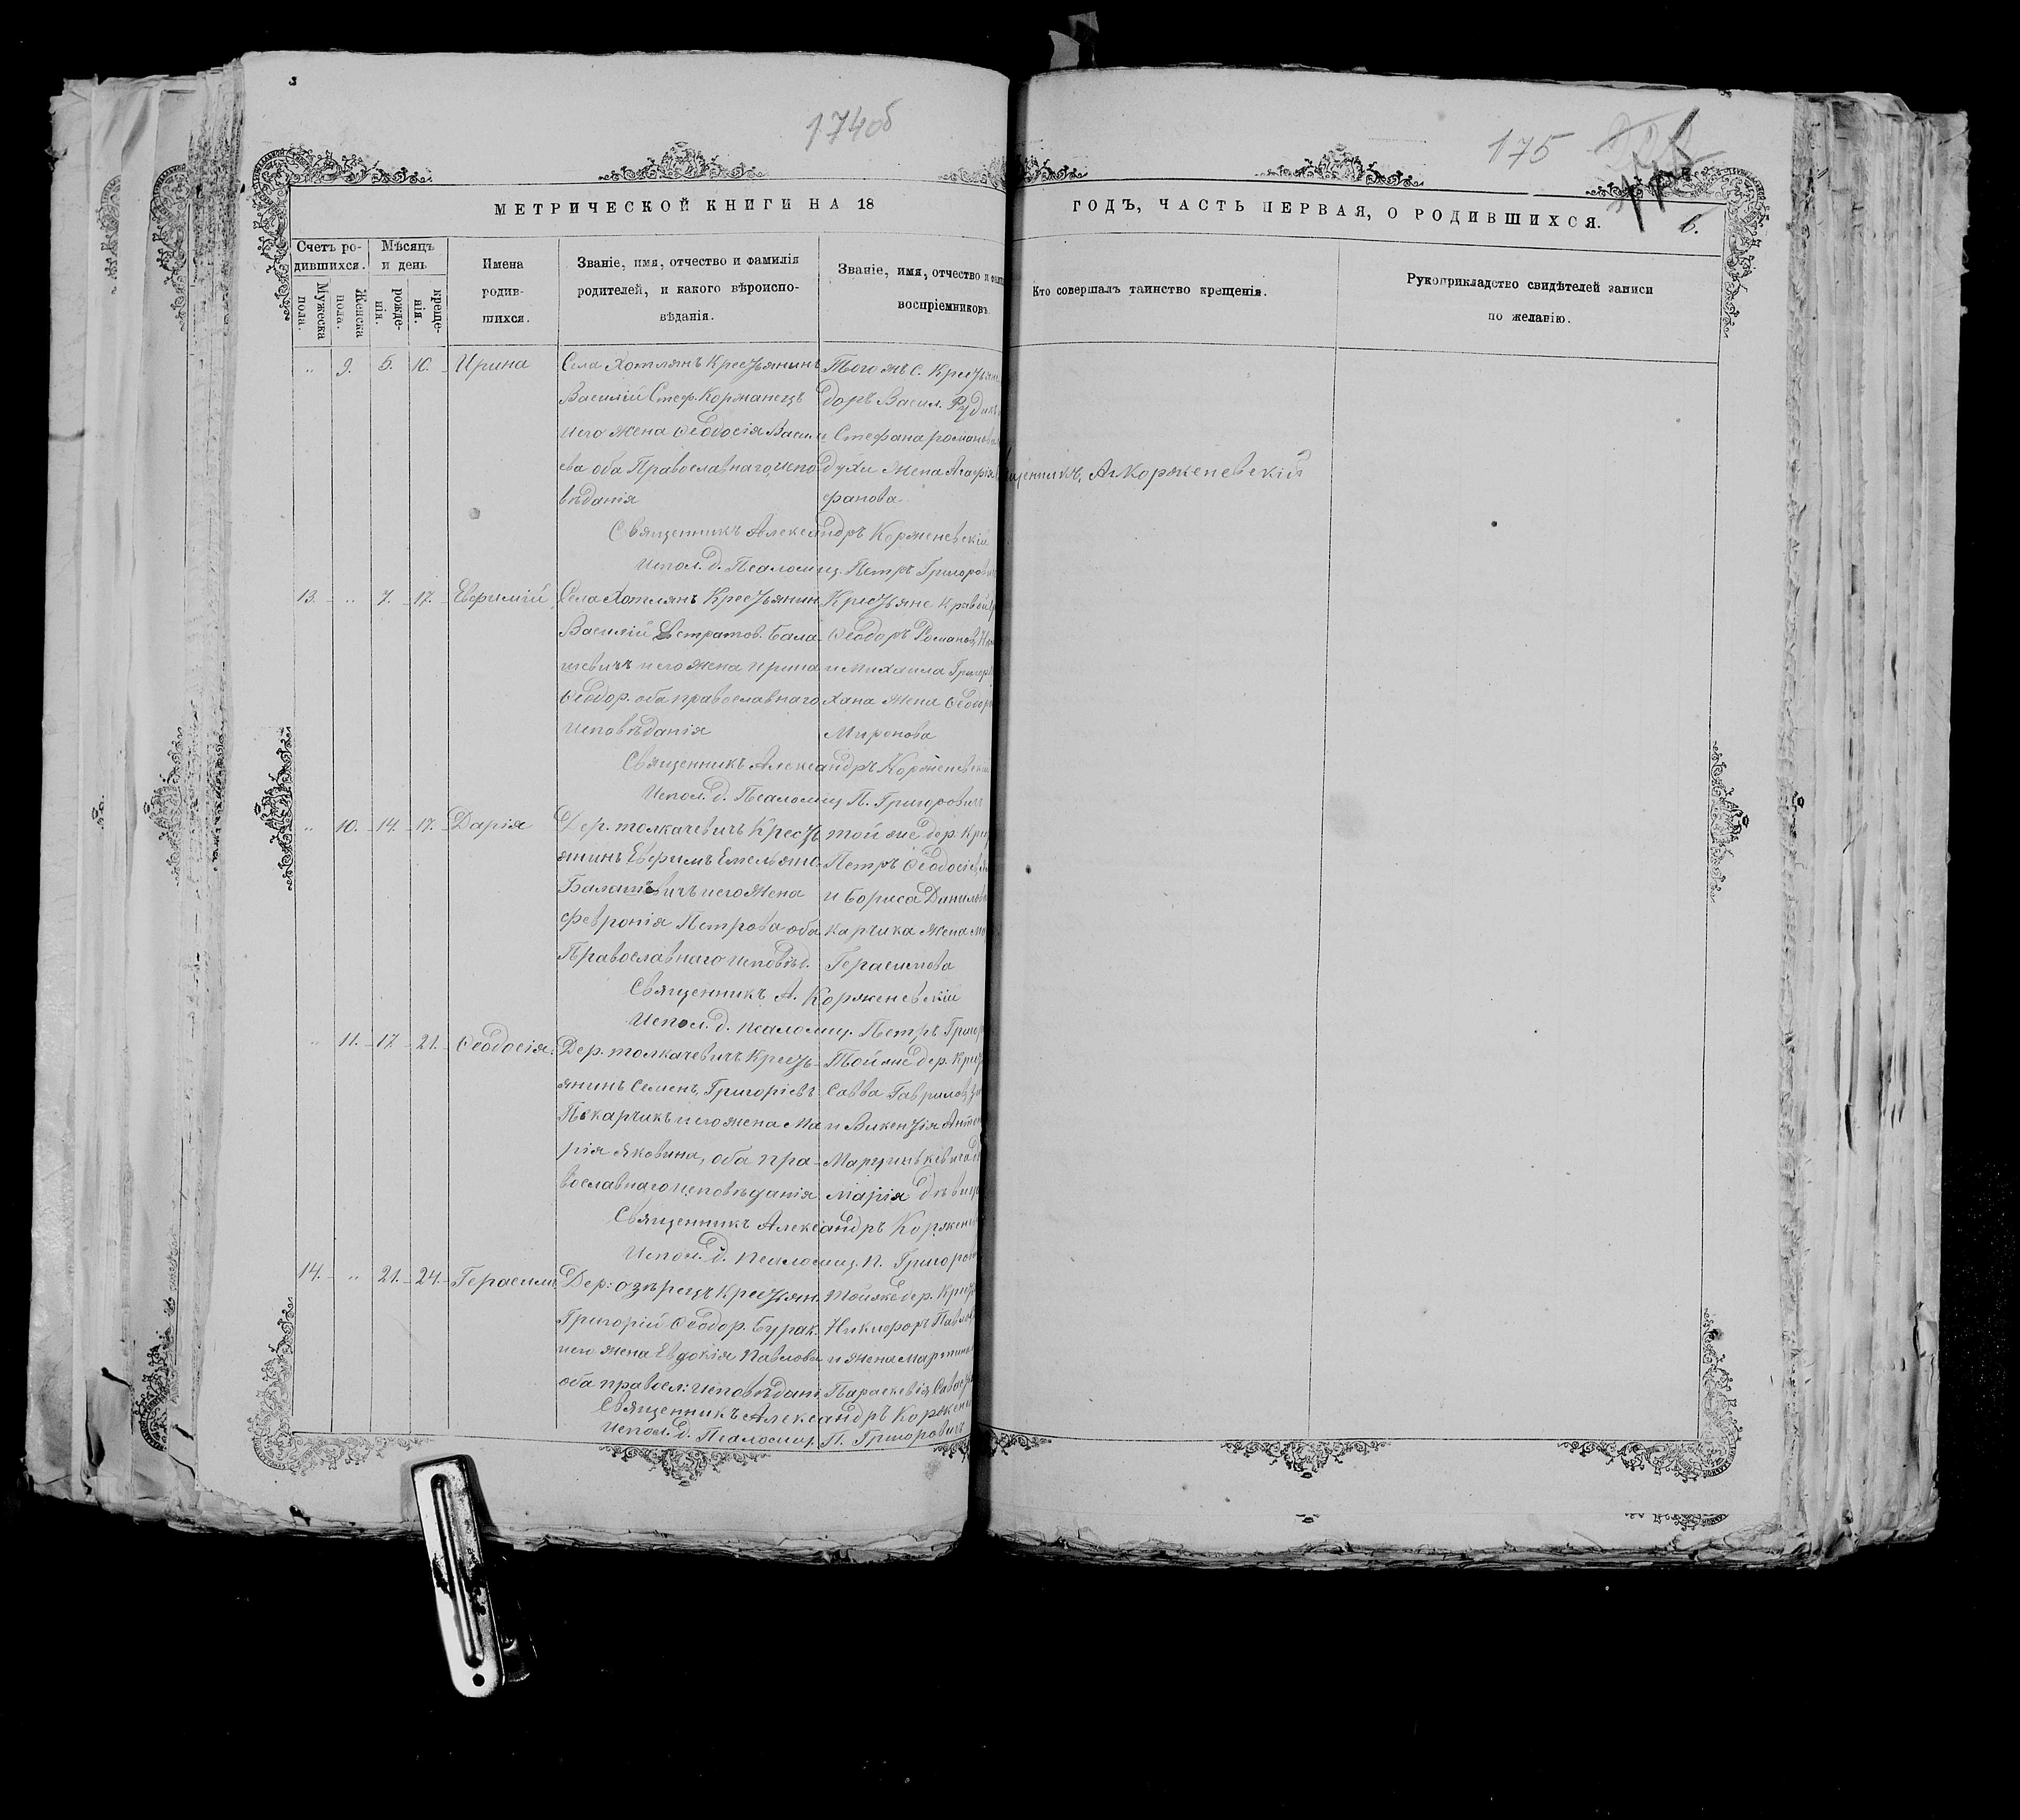 174об
175
6.
МЕТРИЧЕСКОЙ КНИГИ НА 18
ГОДЪ, ЧАСТЬ ПЕРВАЯ, О РОДИВШИХСЯ.
Счетъ ро-
дившихся.
Мужеска
пола.
Женска
пола.
Мѣсяцъ
и день
рожде-
нія.
креще-
нія.
Имена
родив-
шихся.
Званіе, имя, отчество и фамилія
родителей, и какого вѣроиспо-
вѣданія.
Званіе, имя, отчество и
воспріемниковъ
Кто совершалъ таинство крещенія.
Рукоприкладство свидѣтелей записи
по желанію.
„ 9. 5. 10. Ирина
Села Хотлянъ Крестьянинъ
Василій Стеф. Коржанецъ
и его жена Ѳеодосія Васил
ева оба Православнаго испо
вѣданія
Тогожъ с. Крестьян
доръ Васил. Рудикъ
и Стефана романова
духи жена Агафія
фанова
щенникъ, А. Корженевскій
Священникъ Александръ Корженевскій
Испол. д. Псаломщ. Петръ Григорович
13. „ 7. 17. Евфимій
Села Хотлянъ Крестьянин
Василій Евстратов. Бала-
шевичъ и его жена Ирина
Ѳеодор. оба православнаго
исповѣданія
Крестьяне
Ѳеодоръ Романов
и Михаила Григор
хана жена Ѳеодор
Миронова
Священникъ Александръ Корженевски
Испол. д. Псаломщ. П. Григорович
„ 10. 14. 17. Дарія
Дер. толкачевичъ Кресть
янинъ Евфимъ Емельяно-
Балашевичъ и его жена
Февронія Петрова оба
Православнаго исповѣд.
той же дер. Кре
Петръ Ѳеодосіев
и Бориса Данилов
карчика жена
Герасимова
Священникъ А. Корженевскій
Испол. д. псаломщ. Петръ Григор
„ 11. 17. 21. Ѳеодосія.
Дер. толкачевичъ Кресть-
янинъ Семенъ, Григоріевъ
Пекарчикъ и его жена Ма
рія Яковина, оба пра-
вославнаго исповѣданія
Той же дер. Крест
Савва Гаврилов
и Викентія Антон
Марцинкевича
Марія дѣвица
Священникъ Александръ Коржен
Испол. д. псаломщ. П. Григоров
14. „ 21. 24. Герасим
Дер: озѣрецъ Крестьян.
Григорій Ѳеодор. Бурак.
и его жена Евдокія Павлова
оба правосл: исповѣдані
Той же дер. Крест
Никифоръ Павлов
и жена Мартин
Параскевія
Священникъ Александръ Коржен
Испол. д. Псаломщ. П. Григорович